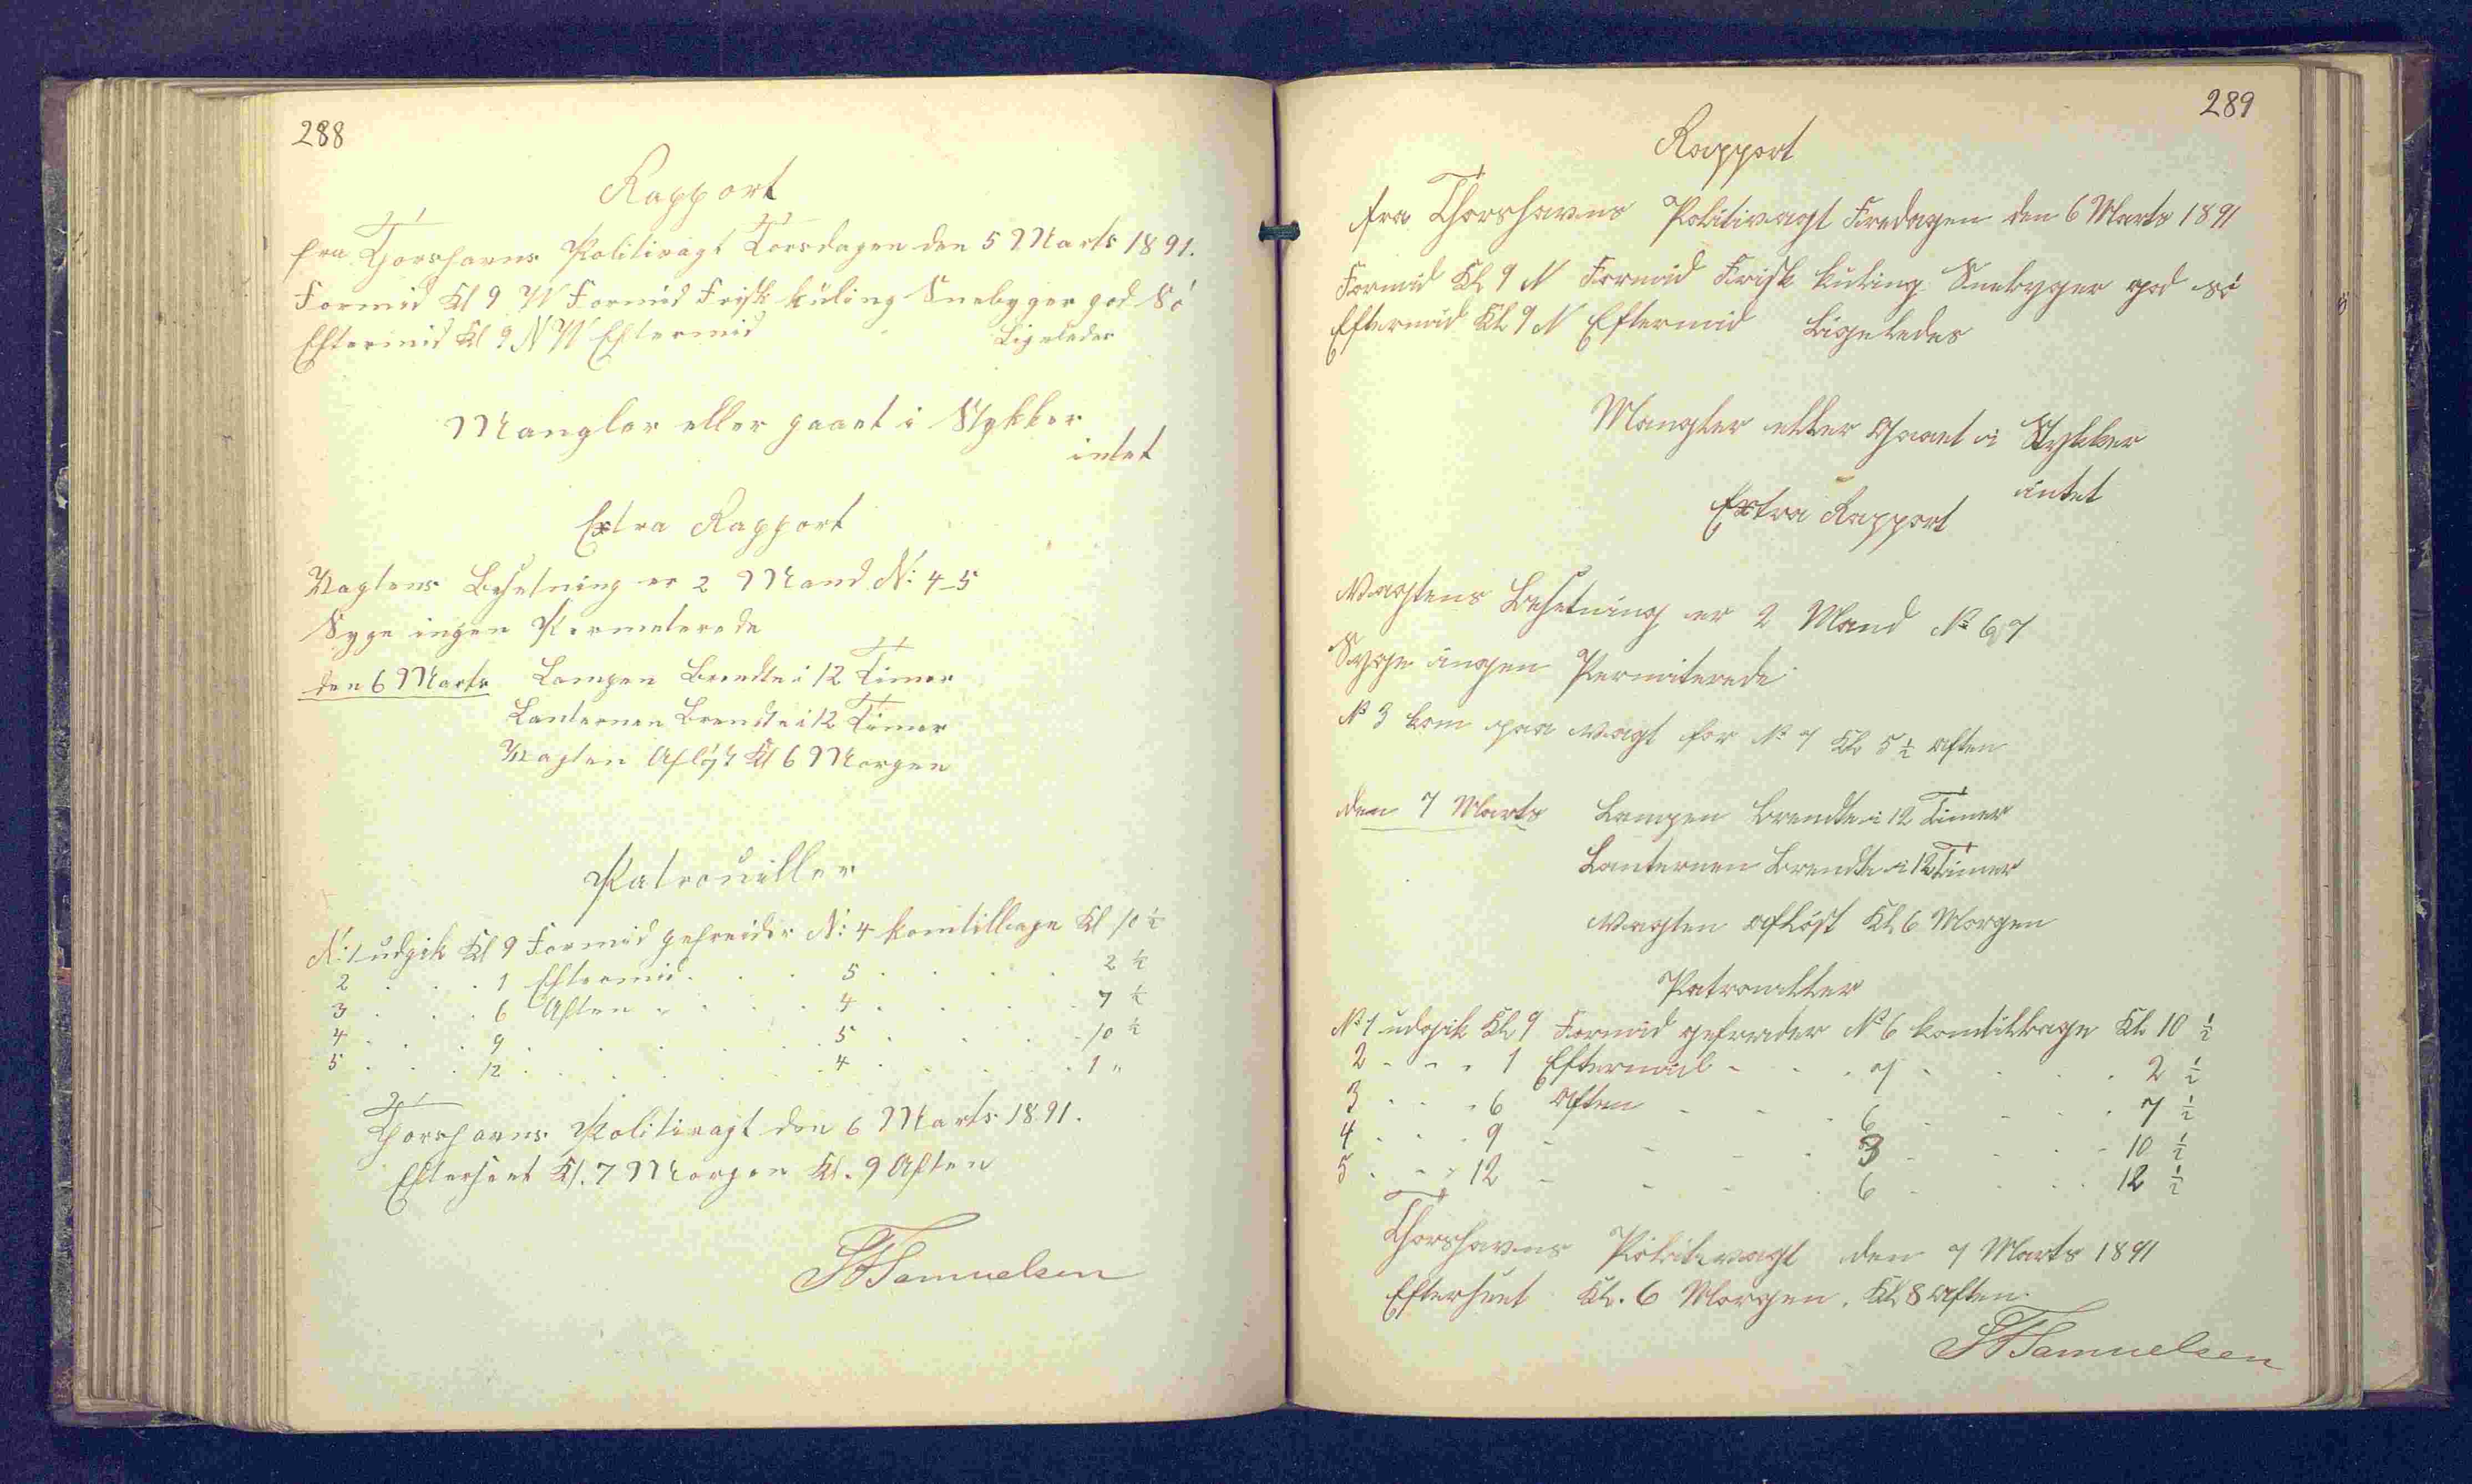 288
Rapport
fra Thorshavns Politivagt Torsdagen den 5 Marts 1891.
Formid Kl 9 W Formid Frisk kuling Snebyger god Sö
Eftermid Kl 9 NW Eftermid Ligeledes
Mangler eller gaaet i Stykker
intet
Extra Rapport
Vagtens Besetning er 2 Mand N: 4-5
Syge ingen Permeterede
den 6 Marts Lampen Brendte i 12 Timer
Lanternen Brendte i 12 Timer
Vagten Aflöst Kl 6 Morgen
Patrouiller
N: 1 udgik Kl 9 Formid gefreider N: 4 kom tilbage Kl 10 ½
2 . . . 1 Eftermid . . . 5 . . . . 2 ½
3 . . . 6 Aften . . . . 4 . . . . 7 ½
4 . . . 9 . . . . . . 5 . . . . 10 ½
5 . . . 12 . . . . . . 4 . . . . 1 "
Thorshavns Politivagt den 6 Marts 1891.
Efterseet Kl. 7 Morgen Kl. 9 Aften
Samuelsen
289
Rapport
fra Thorshavns Politivagt Fredagen den 6 Marts 1891
Formid Kl 9 N Formid Frisk kuling Snebyger god sö
Eftermid Kl 9 N Eftermid Ligeledes
Mangler eller Gaaet i Stykker
intet
Extra Rapport
Vagtens Besetning er 2 Mand No 6, 7
Syge ingen Permiterede
No 3 kom paa vagt for No 7 Kl 5 ½ aften
den 7 Marts Lampen brendte i 12 Timer
Lanternen Brendte i 12 Timer
Vagten aflöst Kl 6 Morgen
Patrouiller
No 1 udgik Kl 9 Formid gefreider No 6 kom tilbage Kl 10 ½
2 - - - 1 Eftermid - . . 7 - . . . 2 ½
3 . . . 6 aften - - . 6 - - . . 7 ½
4 . . . 9 - - - . 3 - - . - 10 ½
5 . - - 12 - - - . 6 - . . . 12 ½
Thorshavns Politivagt den 7 Marts 1891
Efterseet Kl. 6 Morgen. Kl 8 aften.
Samuelsen